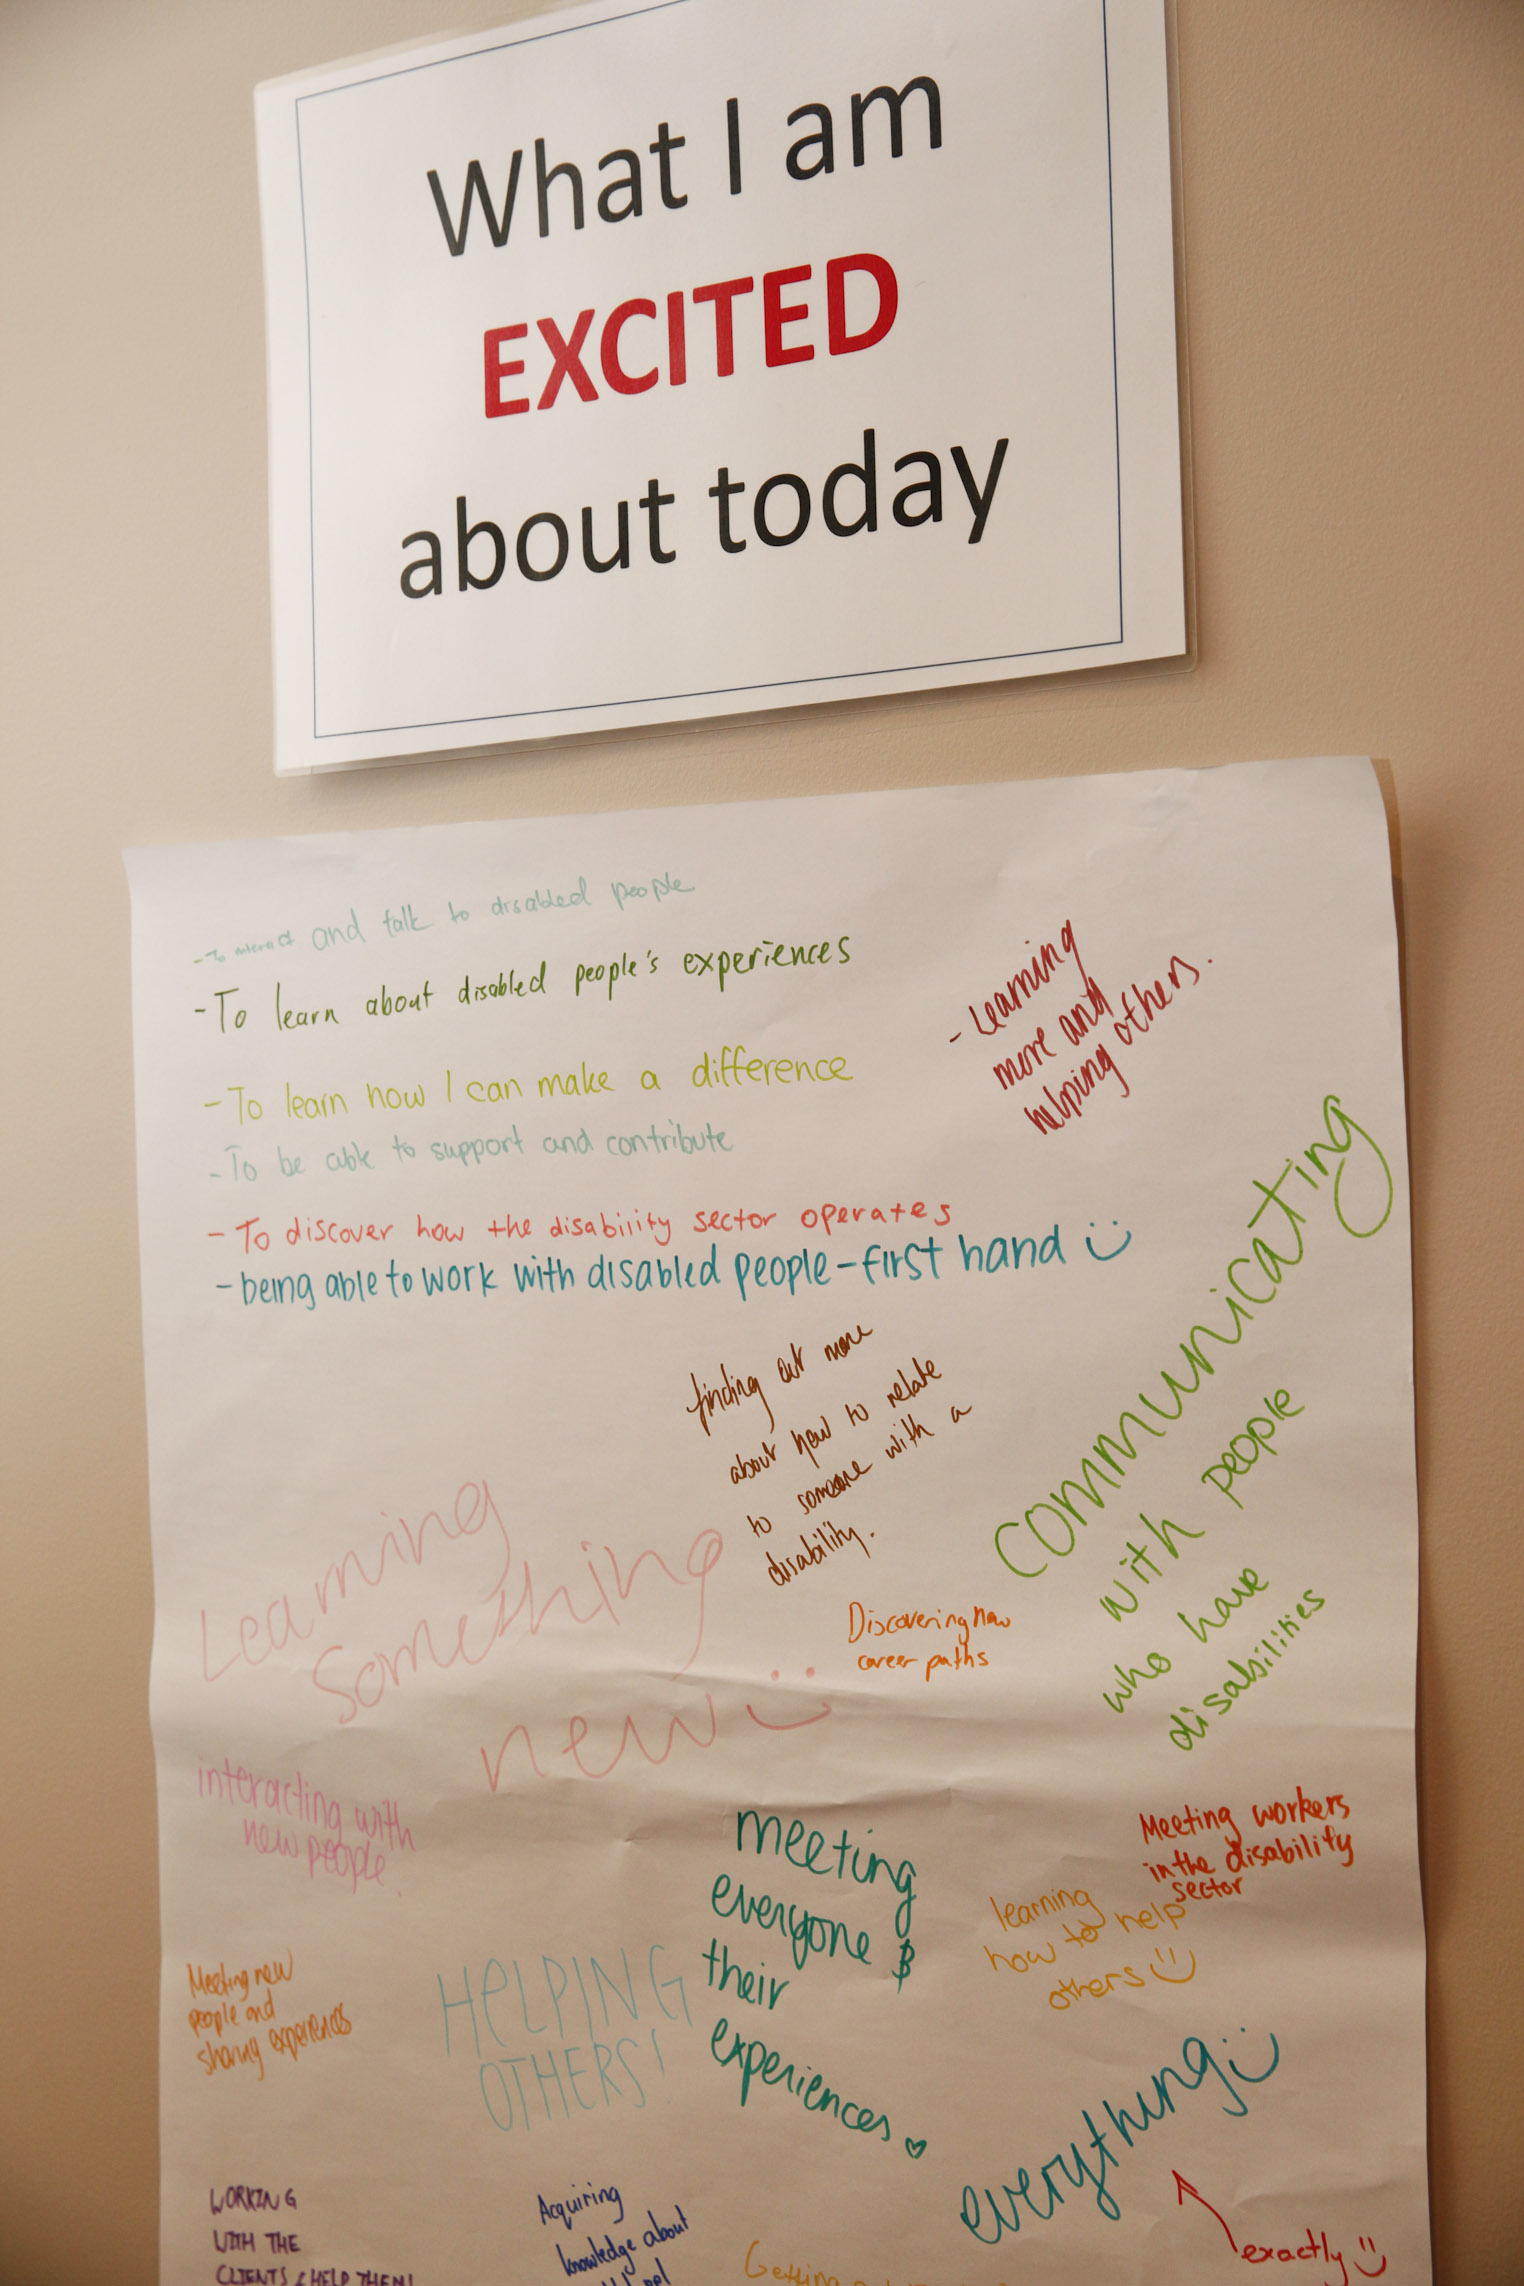 What I am
EXCITED
about today
- To interact and talk to disabled people
- To learn about disabled people's experiences
- To learn how I can make a difference
- To be able to support and contribute
- To discover how the disability sector operates
- being able to work with disabled people - first hand
- Learning
more and
helping others.
communicating
with people
who have
disabilities
finding out more
about how to relate
to someone with a
disability.
Learning
Something
new
Discovering new
career paths
interacting with
new people.
meeting
everyone &
their
experiences
Meeting workers
in the disability
sector
learning
how to help
others
Meeting new
people and
sharing experiences
HELPING
OTHERS!
everything
exactly
WORKING
WITH THE
CLIENTS & HELP THEM!
Acquiring
knowledge about
Getting